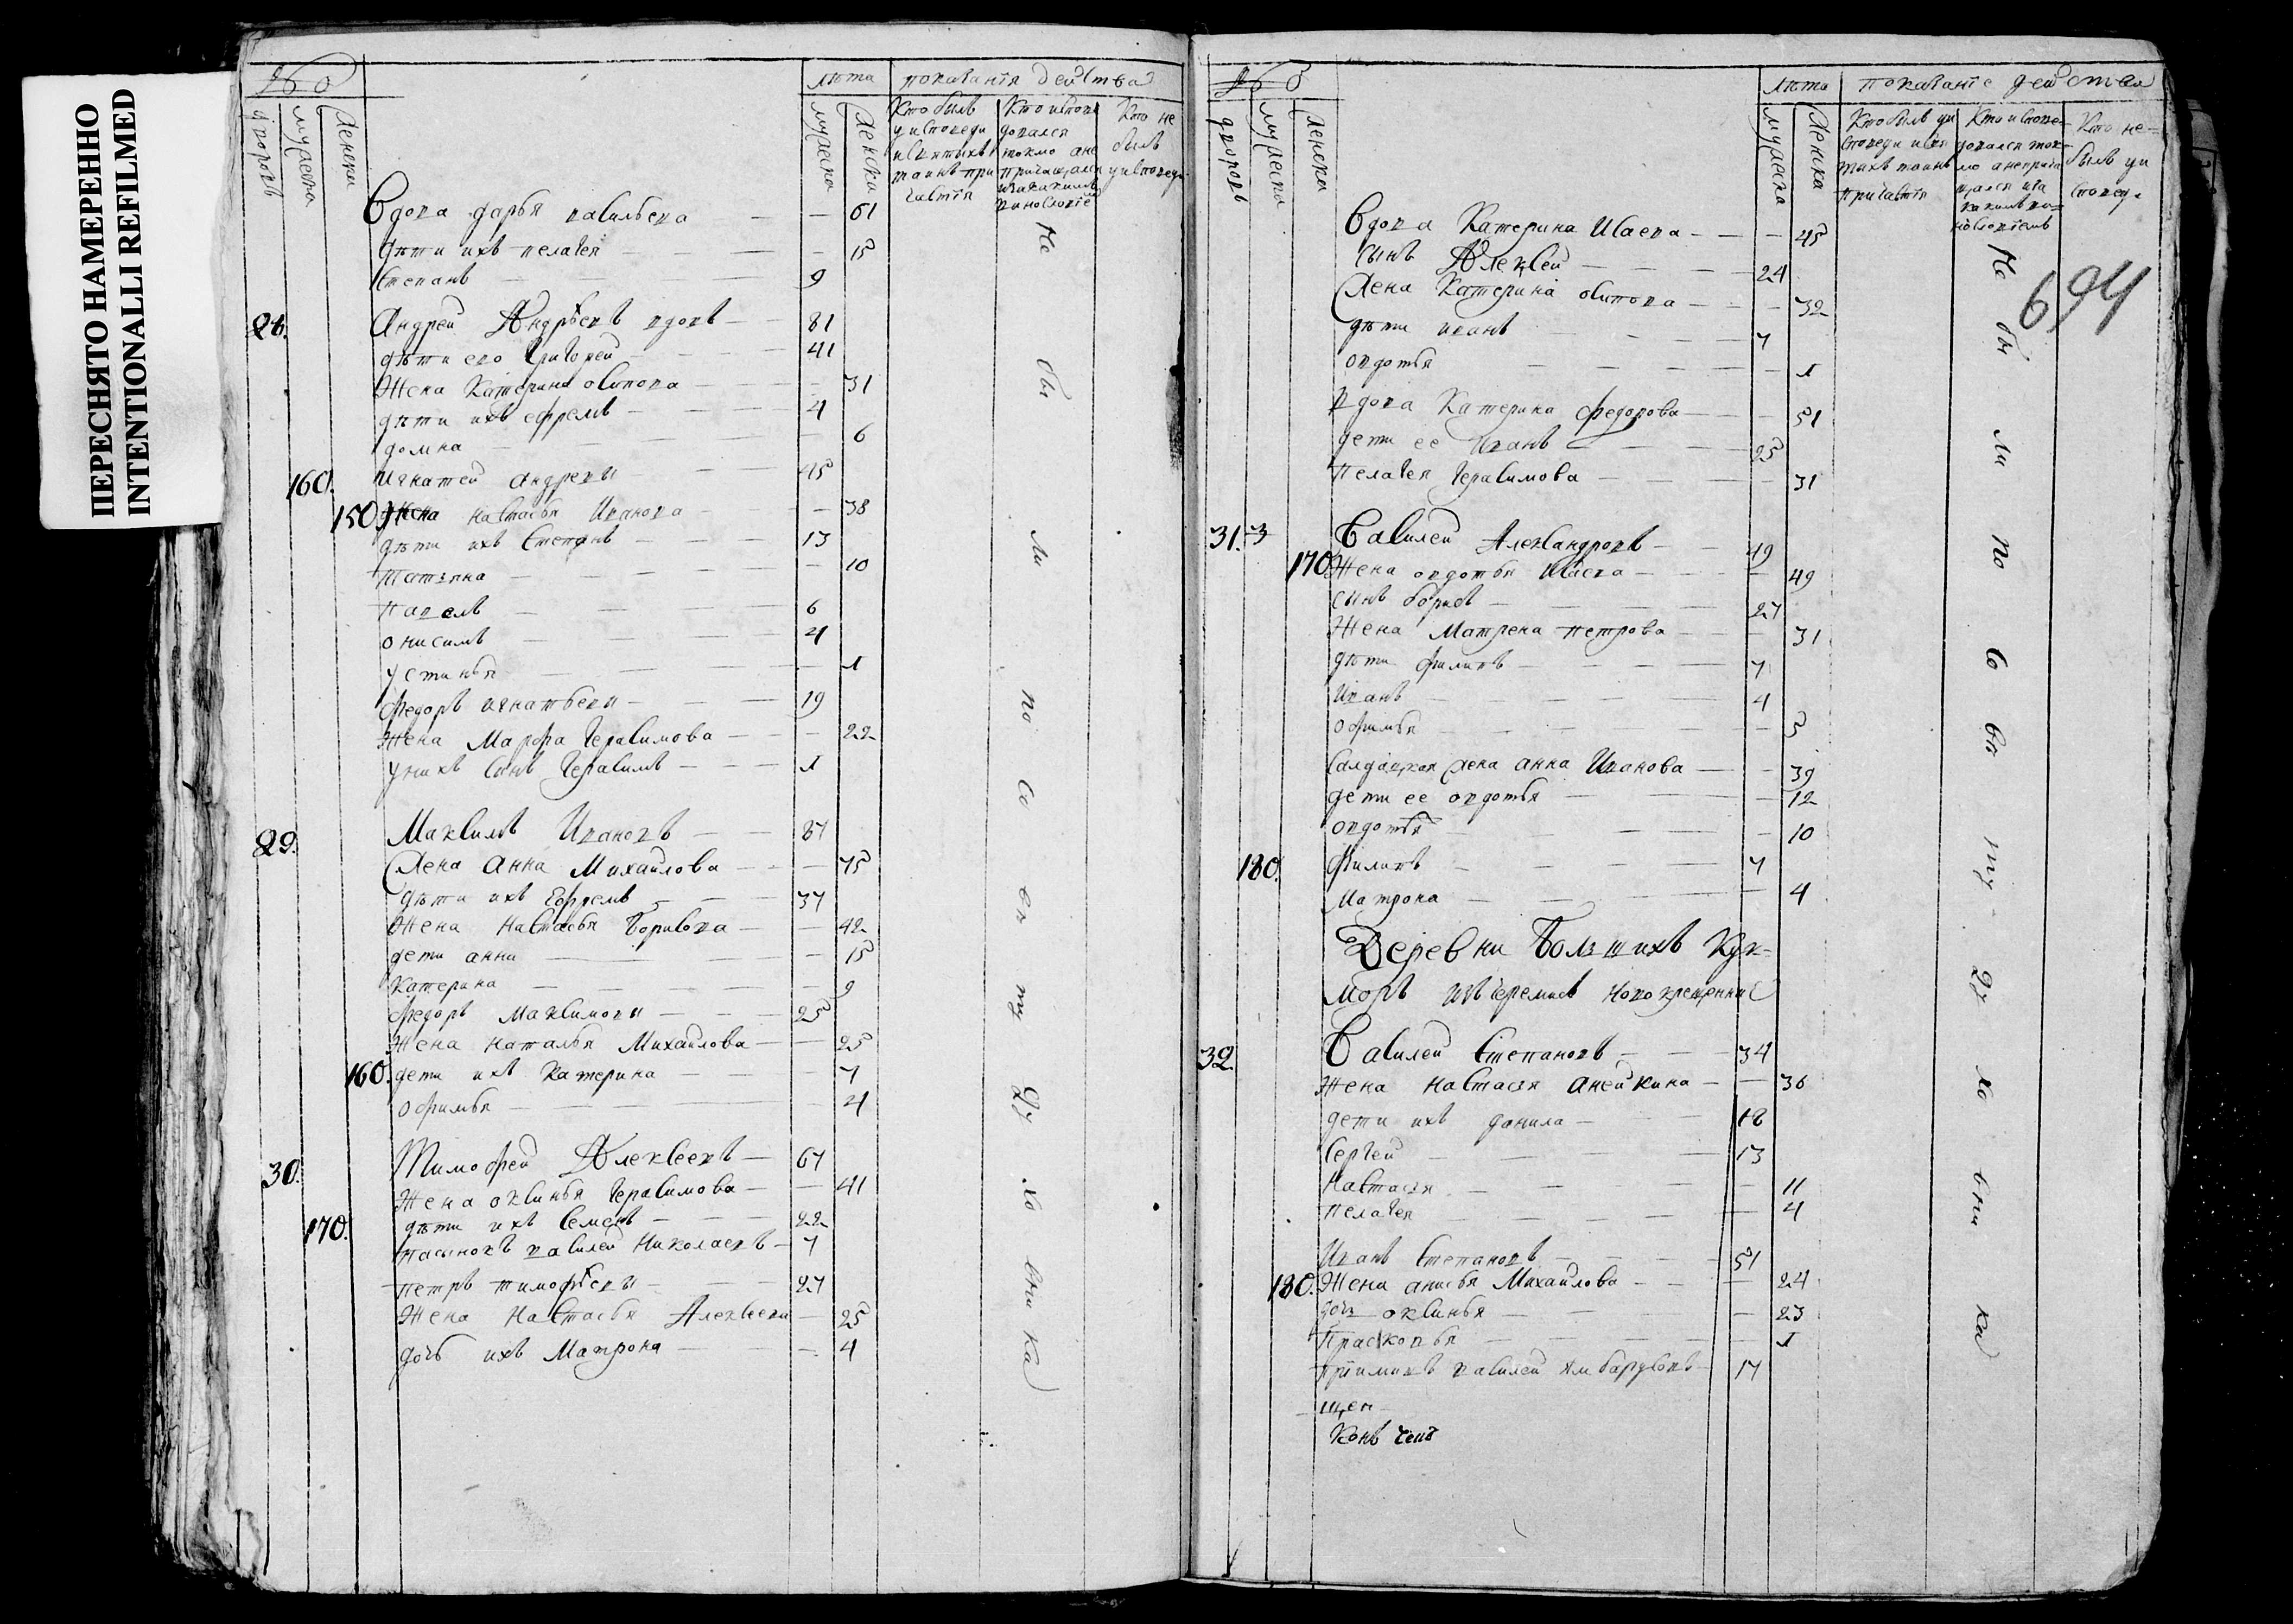 ПЕРЕСНЯТО НАМЕРЕННО
INTENTIONALLI REFILMED
лѣта показанія действа
дворовъ мужеска женска
мужеска женска
Кто былъ у исповеди и святыхъ таинъ причастія
Кто исповедался токмо а не причащался и за какимъ винословіемъ
Кто не былъ у исповеди
Вдова дарья васильева — — 61
дѣти ихъ пелагея — 15
степанъ — 9
28. Андрей Андрѣевъ вдовъ — 81
дѣти его Григорей — 41
Жена Катерина осипова — 31
дѣти ихъ ефремъ — 4
домна — 6
160. игнатей андревъ — 45
150. Жена настасья Иванова — 38
дѣти ихъ степанъ — 13
татьяна — 10
павелъ — 6
онисимъ — 4
устинья — 1
федоръ игнатьевъ — 19
Жена Марфа Герасимова — 22
у нихъ сынъ Герасимъ — 1
29. Максимъ Ивановъ — 87
Жена анна Михаилова — 75
дѣти ихъ Ефремъ — 37
Жена настасья борисова — 42
дети анна — 15
Катерина — 9
федоръ максимовъ — 25
Жена наталья Михаилова — 25
160. дети ихъ Катерина — 7
офимья — 4
30. Тимофей Алексеевъ — 67
Жена оксинья Герасимова — 41
170. дѣти ихъ семенъ — 22
пасынокъ василей николаевъ — 7
петръ тимофѣевъ — 27
Жена настасья Алексеева — 25
дочь ихъ Матрона — 4
Не бы ли по со вѣ ту ду хо вни ка
лѣта показаніе действа
дворовъ мужеска женска
мужеска женска
Кто былъ у исповеди и святыхъ таинъ причастія
Кто исповедался токмо а не причащался и за какимъ винословіемъ
Кто не былъ у исповеди
694
Вдова Катерина Исаева — 45
сынъ Алексей — 24
Жена Катерина осипова — 32
дѣти иванъ — 7
овдотья — 1
Вдова Катерина федорова — 51
дети ее Иванъ — 25
пелагея Герасимова — 31
31. Василей Александровъ — 49
170. Жена овдотья Исаева — 49
сынъ борисъ — 27
Жена Матрена петрова — 31
дѣти филипъ — 7
Иванъ — 4
офимья — 3
салдацкая жена анна Иванова — 39
дети ее овдотья — 12
овдотья — 10
180. филипъ — 7
Матрона — 4
Деревни Большихъ Кук-
моръ изъ черемисъ новокрещенные
32. Василей Степановъ — 34
Жена настасья анейкина — 36
дети ихъ данила — 18
сергей — 13
настасья — 11
пелагея — 4
Иванъ Степановъ — 51
180. Жена анисья Михаилова — 24
дочь оксинья — 23
прасковья — 1
приимышъ василей — 17
Не бы ли по со вѣ ту ду хо вни ка